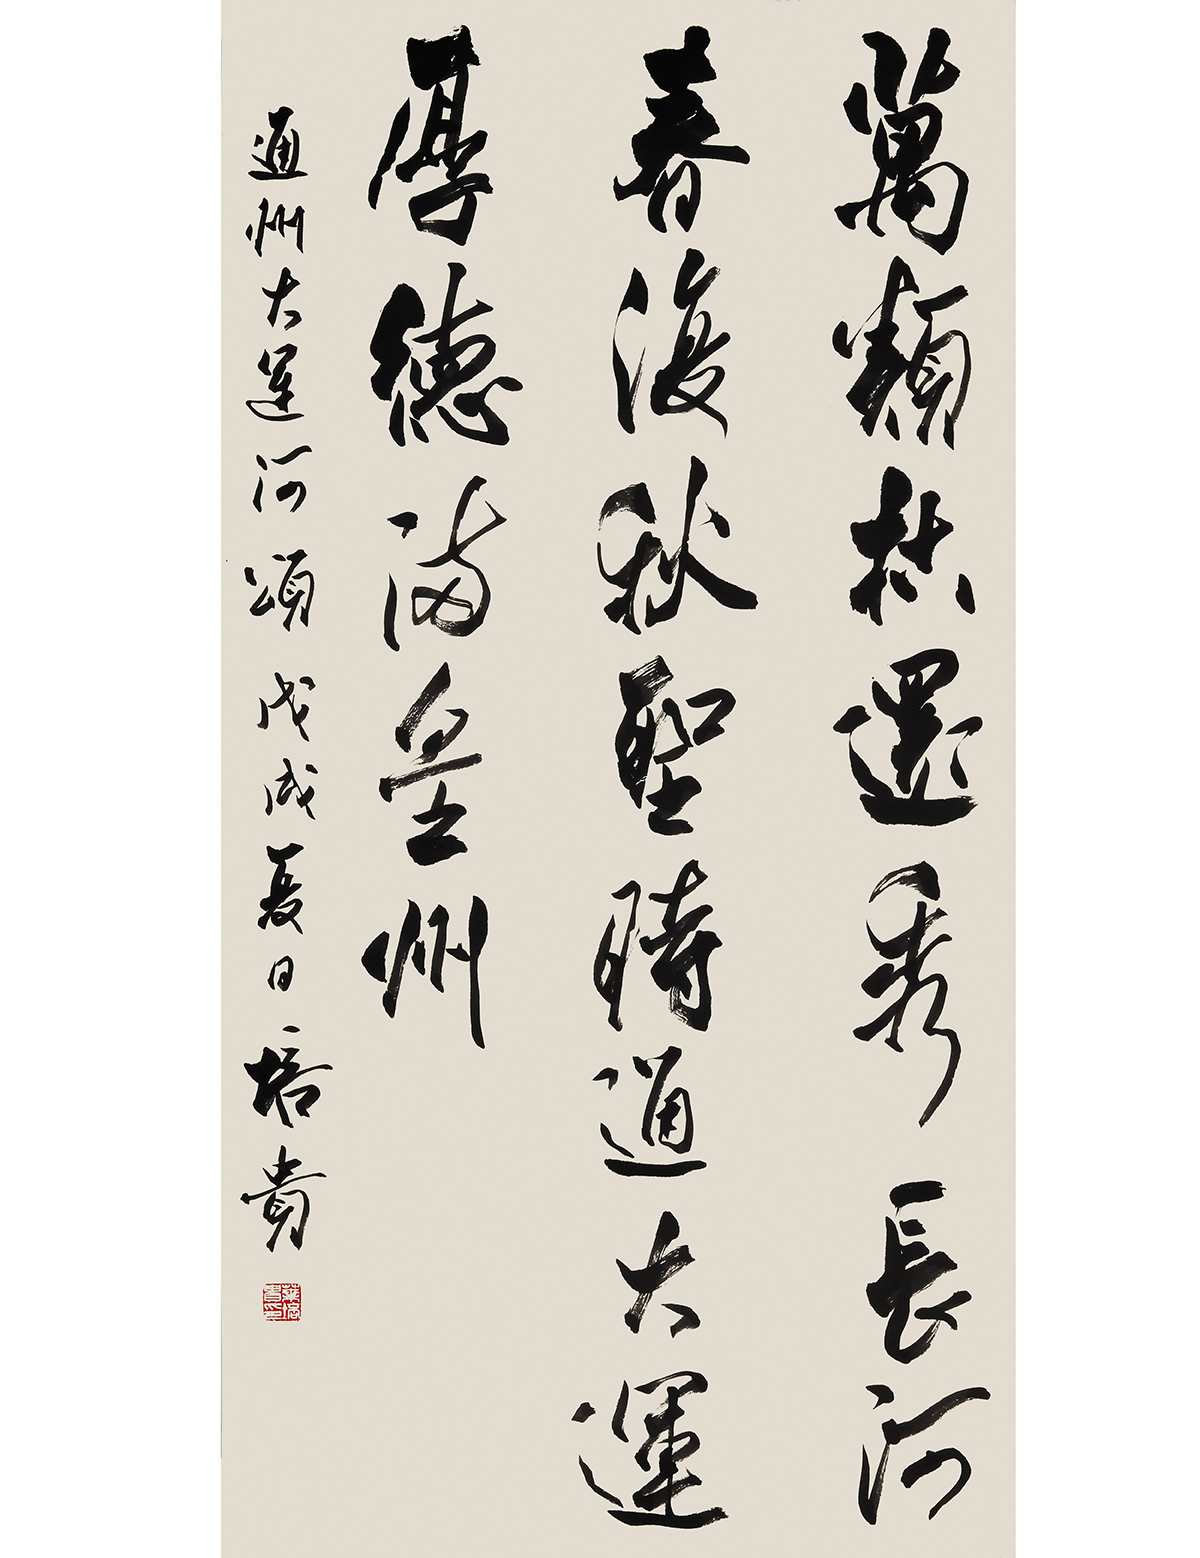 萬類枯還秀長河
春復秋聖時通大運
厚德滿皇州
通州大運河頌 戊戌夏日 培貴
葉培貴印